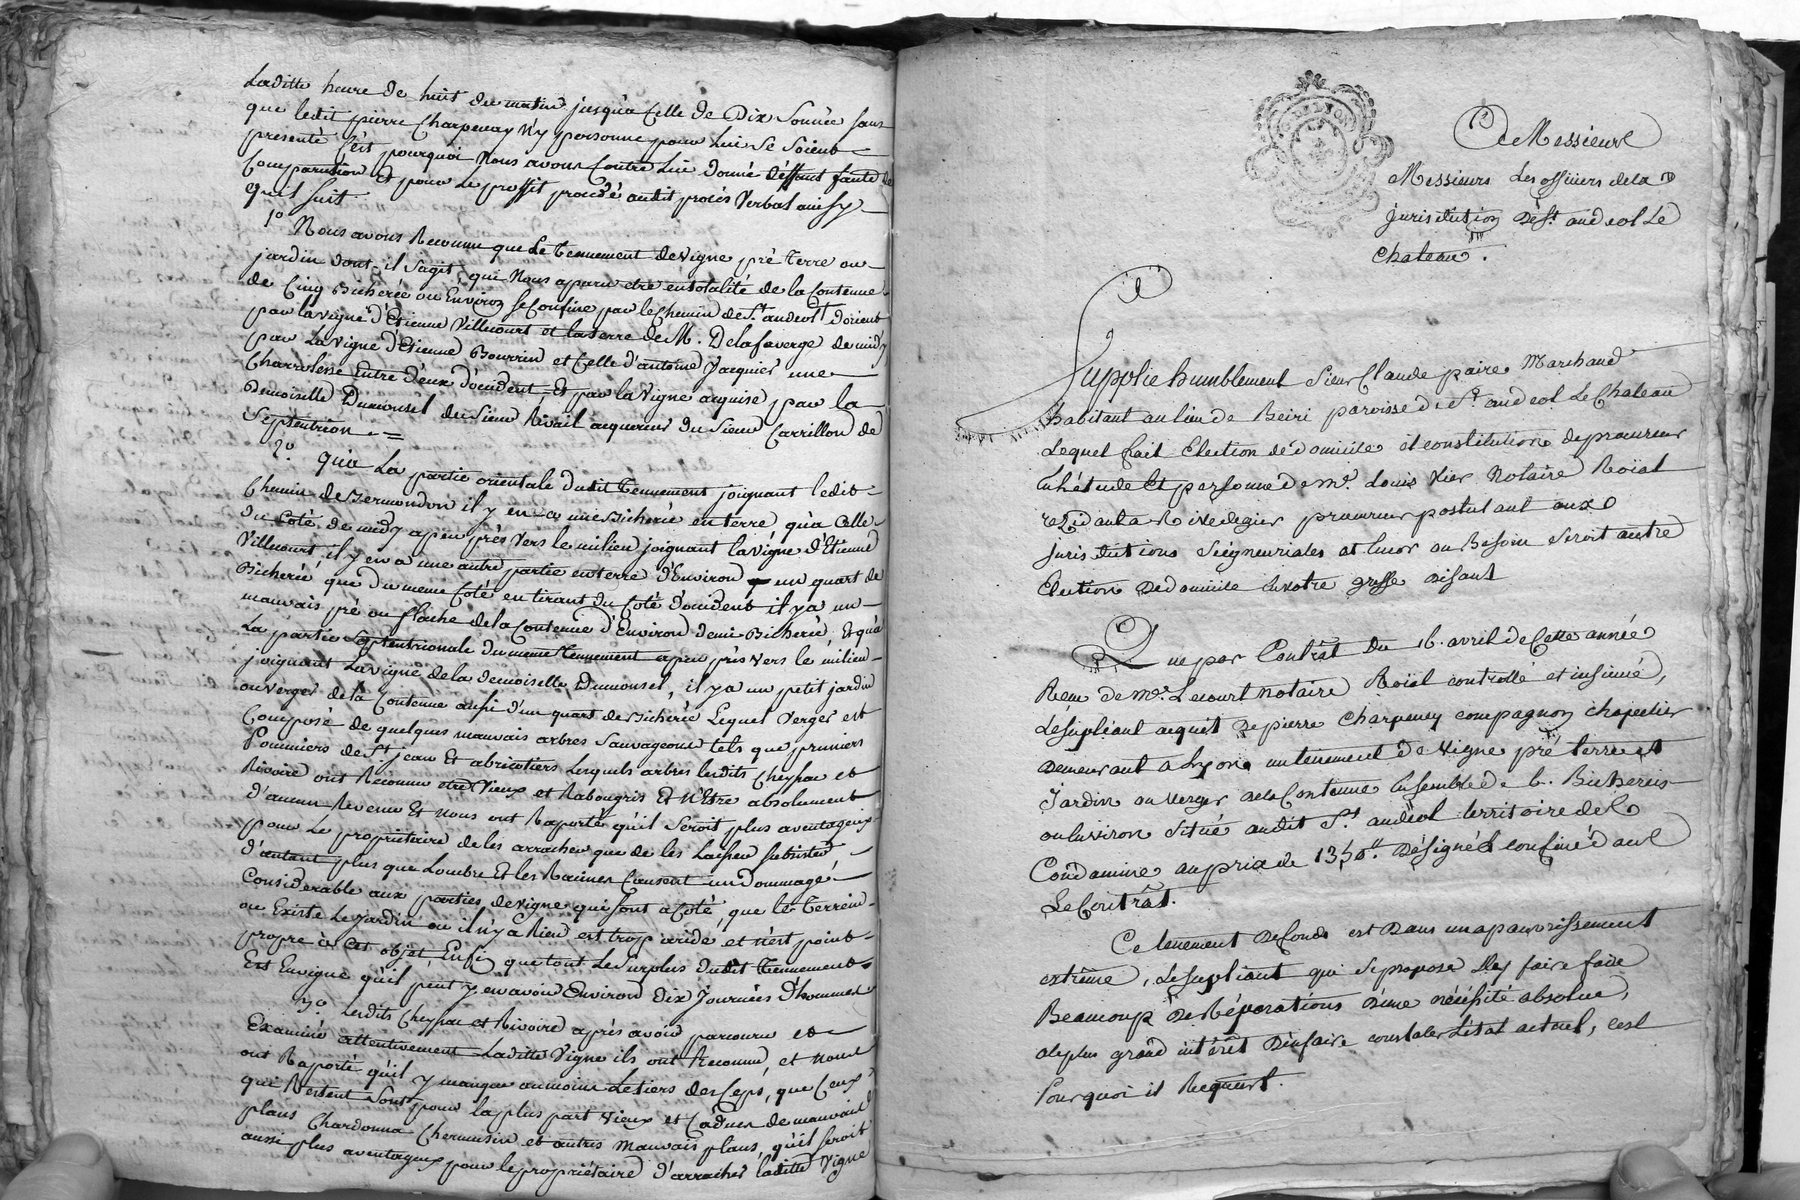 Laditte heure de huit du matin jusqu'a Celle de Dix Sonnée sans
que ledit pierre Charpenay n'y personne pour Lui Se Soient
presenté C'est pourquoi Nous avons Contre Lui donné déffaut faute de
Comparution Et pour Le proffit procédé audit procés Verbal ainsy
qu'il suit
1º Nous avons Reconnu que Le Tennement de vigne pré Terre ou
jardin dont il S'agit, qui Nous aparu etre en totalité de la Contenue
de Cinq Bicherée ou Environ se Confine par le Chemin de St andeol d'orient
par la vigne d'Etienne Villecourt et la terre de M. Delafaverge de midy
par La Vigne d'Etienne Bourrin et Celle d'antoine Jacquier une
Charrolesse Entre d'eux d'occident Et par la Vigne acquise par la
Demoiselle Dumonsel du Sieur Rivail acquereur du Sieur Carrillon de
Septentrion
2º. Que La partie orientale dudit Tennement joignant ledit
Chemin de Bermondon il y en a une Bicherée en terre, qu'a Celle
du Coté de midy a peu prés vers le milieu joignant la vigne d'Etienne
Villecourt il y en a une autre partie en terre d'Environ un quart de
Bicherée, que du meme Coté en tirant du Coté d'occident il y a un
mauvais pré ou flache de la Contenue d'Environ demi Bicherée, Et qu'a
La partie Septentrionale du meme Tennement a peu près vers le milieu
joignant La vigne de la Demoiselle Dumonsel, il y a un petit jardin
ou verger de la Contenue aussi d'un quart de Bicherée Lequel Verger est
Composé de quelques mauvais arbres Sauvageons tels que pruniers
Pommiers de St jean Et abricotiers Lesquels arbres lesdits Cheyssac et
Rivoire ont Reconnu etre Vieux et Rabougris Et N'Etre absolument
d'aucun Revenu Et Nous ont Raporté qu'il Seroit plus aventageux
pour Le propriétaire de les arracher que de les Laisser subsister
d'autant plus que Lombre Et les Racines Causent un Dommage
Considerable aux parties de vigne qui sont a Coté, que le Terrein
ou Existe Le jardin ou il n'y a Rien est trop aride et n'est point
propre à Cet objet, Enfin que tout Le Surplus dudit Tennement
Est En vigne qu'il peut y en avoir Environ dix journées d'hommes
3º. Lesdits Cheyssac et Rivoire après avoir parcouru et
Examiné attentivement Laditte Vigne ils ont Reconnu, et nous
ont Raporté qu'il y manque au moins Le tiers des Ceps, que Ceux
qui Restent Sont pour la plus part Vieux et Caducs de mauvais
plans Chardonna Chermesin et autres Mauvais plans, qu'il Seroit
aussi plus aventageux pour le propriétaire d'arracher laditte Vigne
A Messieurs
Messieurs Les officiers de la
jurisdiction De St andeol Le
Chateau.
Supplie humblement Sieur Claude paire Marchand
habitant au lieu de Beiri paroisse de St andeol Le Chateau
Lequel fait Election de domicile et constitution de procureur
En l'étude Et personne de me. Louis Vier Notaire Roïal
rezidant a Rivedegier procureur postulant aux
jurisdictions Seigneuriales et Encor au Besoin Seroit autre
Election de domicile En votre greffe Disant
Que par Contrat du 16. avril de Cette année
Recu de me. Lecourt notaire Roïal controllé et insinué,
Le supliant aequit de pierre Charpeney compagnon chapelier
demeurant a Lyon un tenement de vigne pré terre et
Jardin ou verger de la Contenue Ensemble de 6. Bicherées
ou Environ Situé audit St andeol territoire de
Condamine au prix de 1350.ll Désigné & confiné dans
Le Contrat.
Ce tenement de fonds est Dans un apauvrissement
extrême, Le supliant qui se propose d'ey faire faire
Beaucoup de Réparations d'une nécéssité absolue,
a le plus grand intérêt D'en faire constater L'état actuel, c'est
Pourquoi il Requiert.